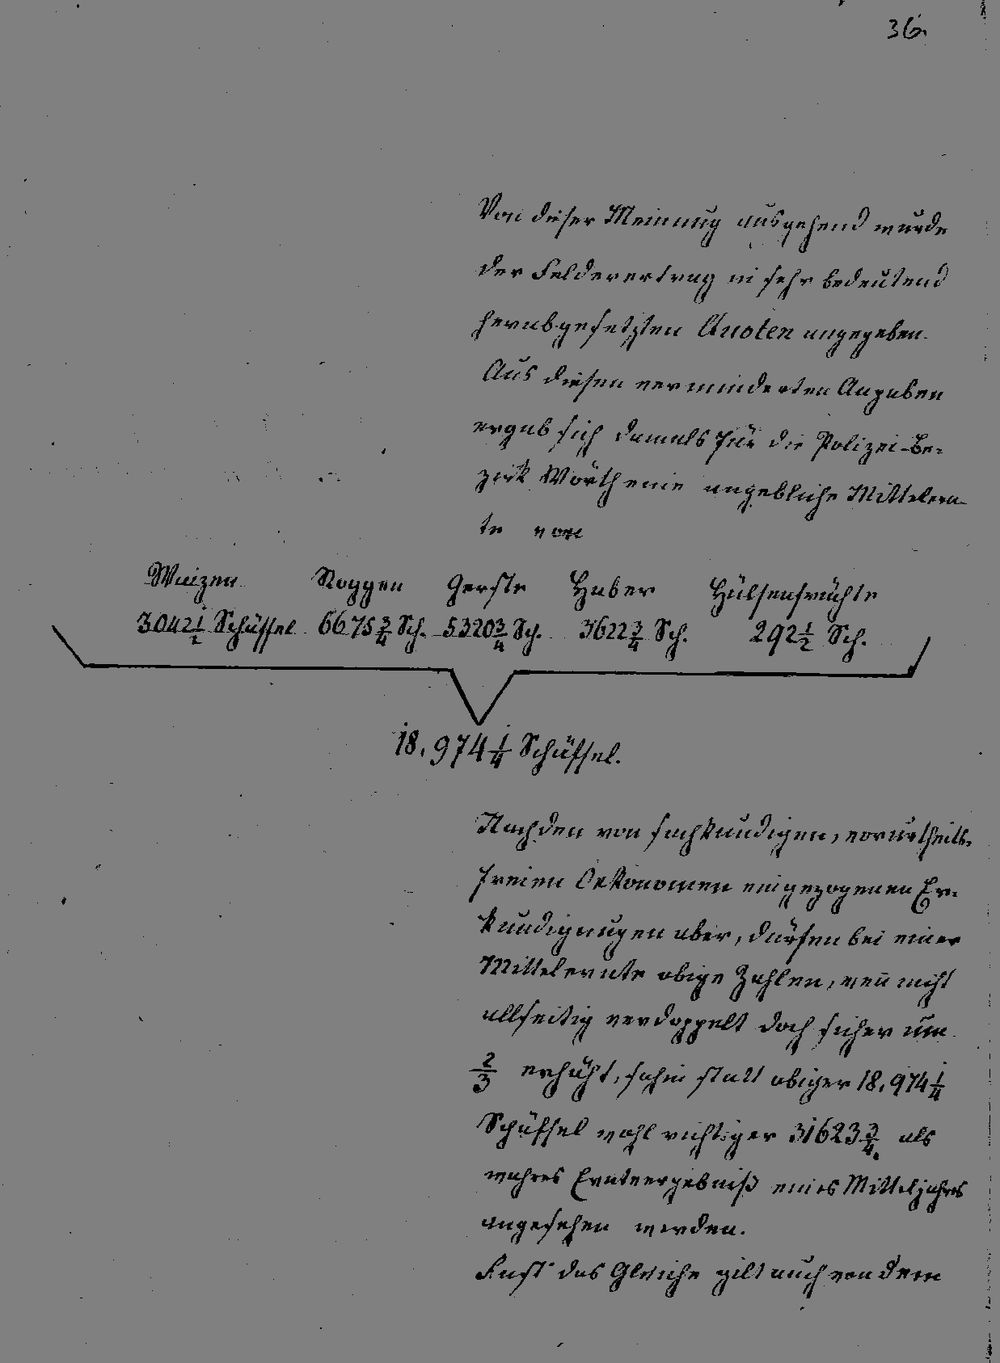 36.
Von dieser Meinung ausgehend wurde
der Felderertrag in sehr bedeutend
herabgesetzten Quoten angegeben.
Aus diesen verminderten Angaben
ergab sich damals für die Polizei-Be-
zirk Wörth eine angebliche Mittelern-
te von
Waizen Roggen Gerste Haber Hülsenfrüchte
3042 1/2 Schäffel 6675 3/4 Sch. 5320 3/4 Sch. 3622 3/4 Sch. 292 1/2 Sch.
18,974 1/4 Schäffel.
Nach den von sachkundigen, vorurtheils-
freien Oekonomen eingezogenen Er-
kundigungen aber, dürfen bei einer
Mittelernte obige Zahlen, wen̄ nicht
allseitig verdoppelt doch sicher um
2/3 erhöht, sohin statt obiger 18,974 1/4
Schäffel wohl richtiger 31623 3/4 als
wahres Ernteergebniß eines Mitteljahres
angesehen werden.
Fast das Gleiche gilt auch von dem